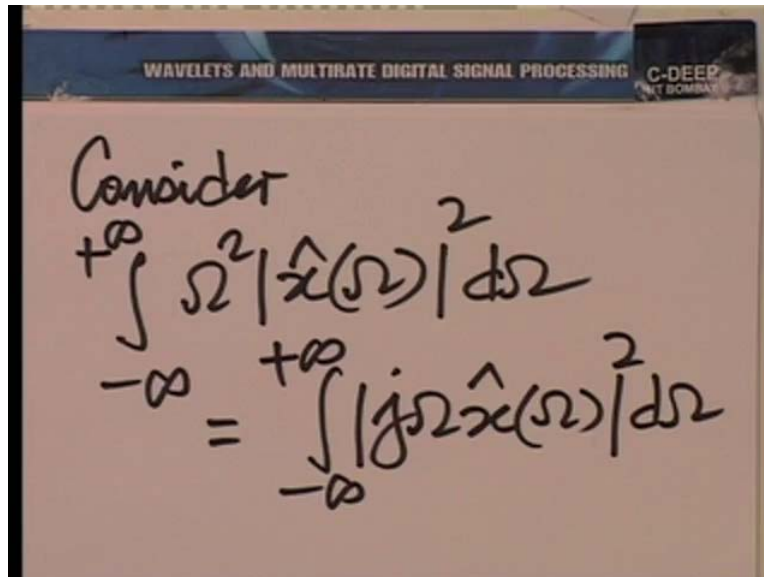 WAVELETS AND MULTIRATE DIGITAL SIGNAL PROCESSING
C-DEEP
IIT BOMBAY
Consider
+∞
∫ Ω²|x̂(Ω)|² dΩ
-∞
+∞
= ∫ |jΩx̂(Ω)|² dΩ
-∞